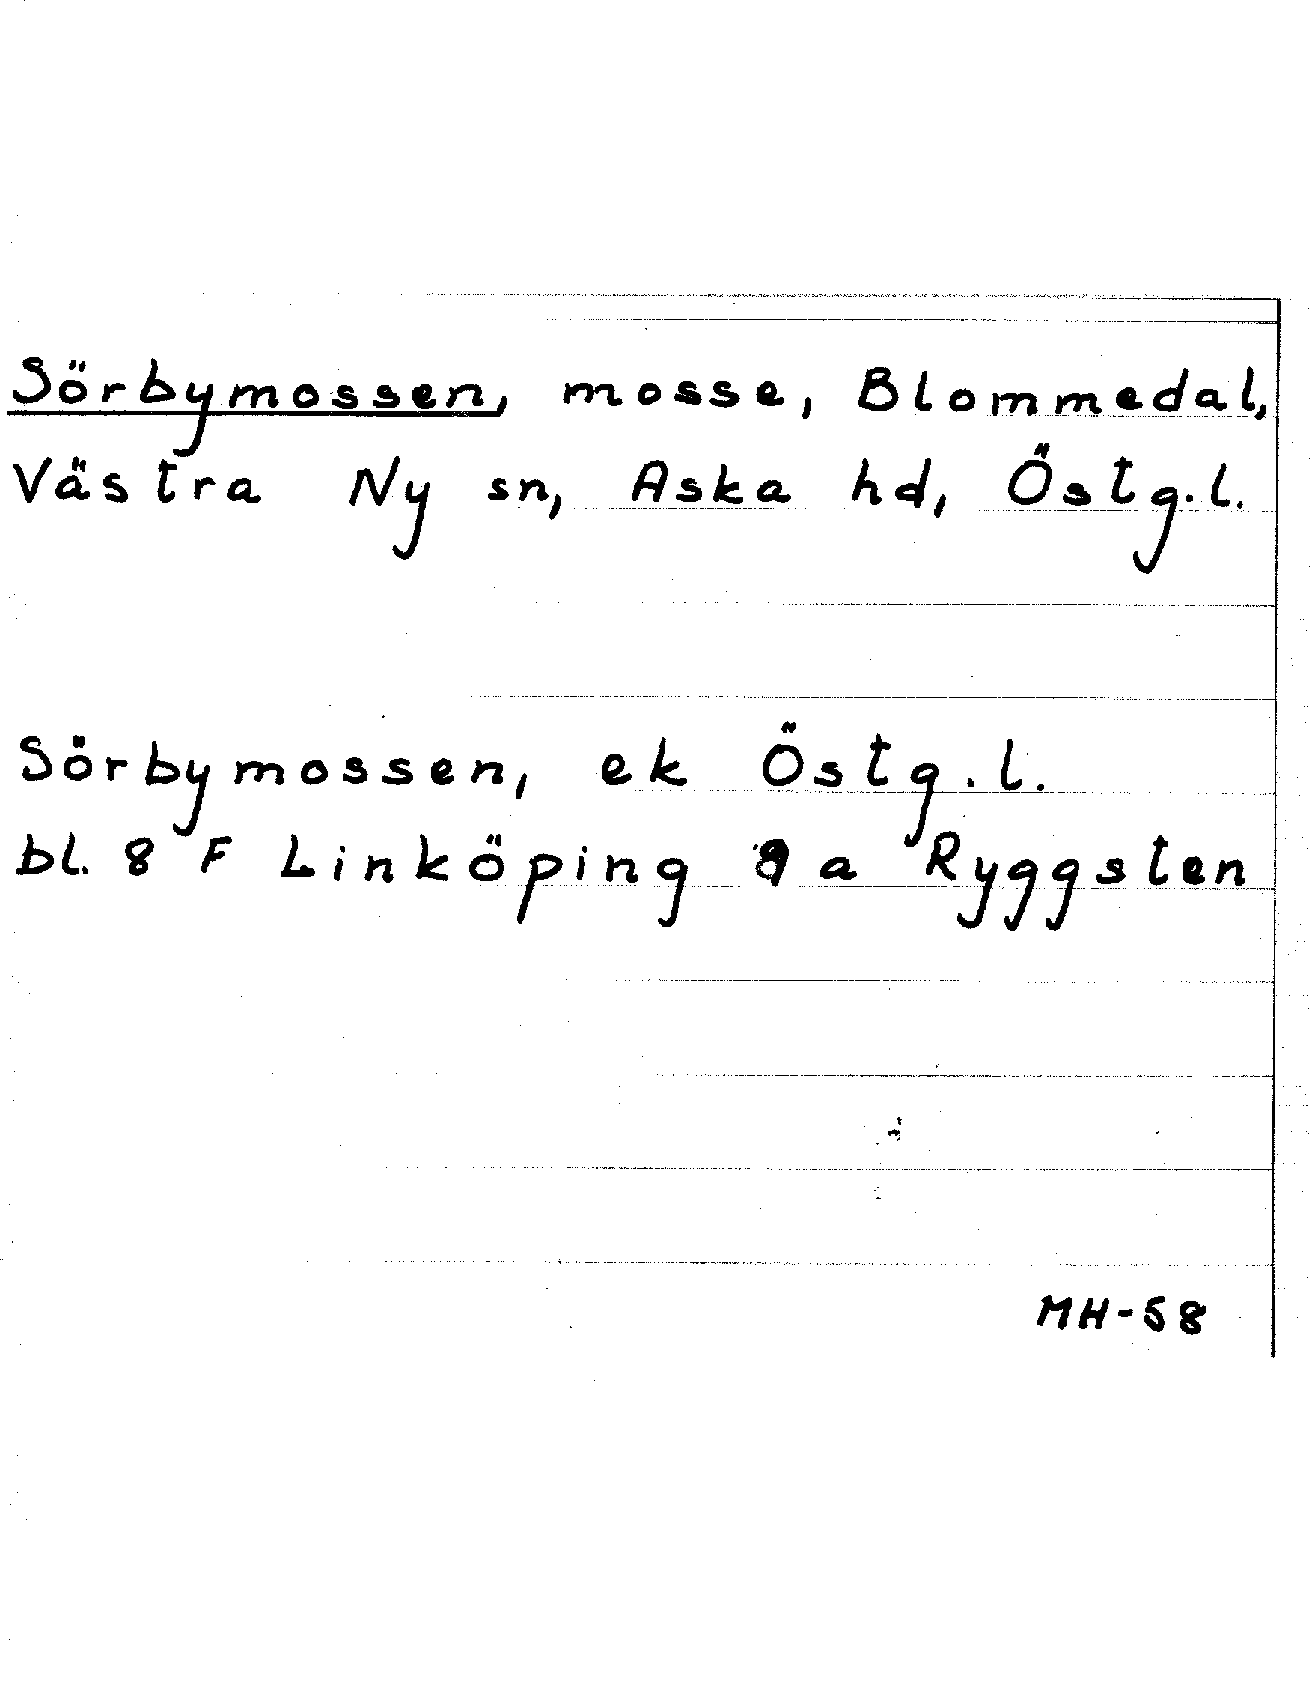 Sörbymossen, mosse, Blommedal,
Västra Ny sn, Aska hd, Östg.l.
Sörbymossen, ek Östg.l.
bl. 8 F Linköping 9 a Ryggsten
MH-58